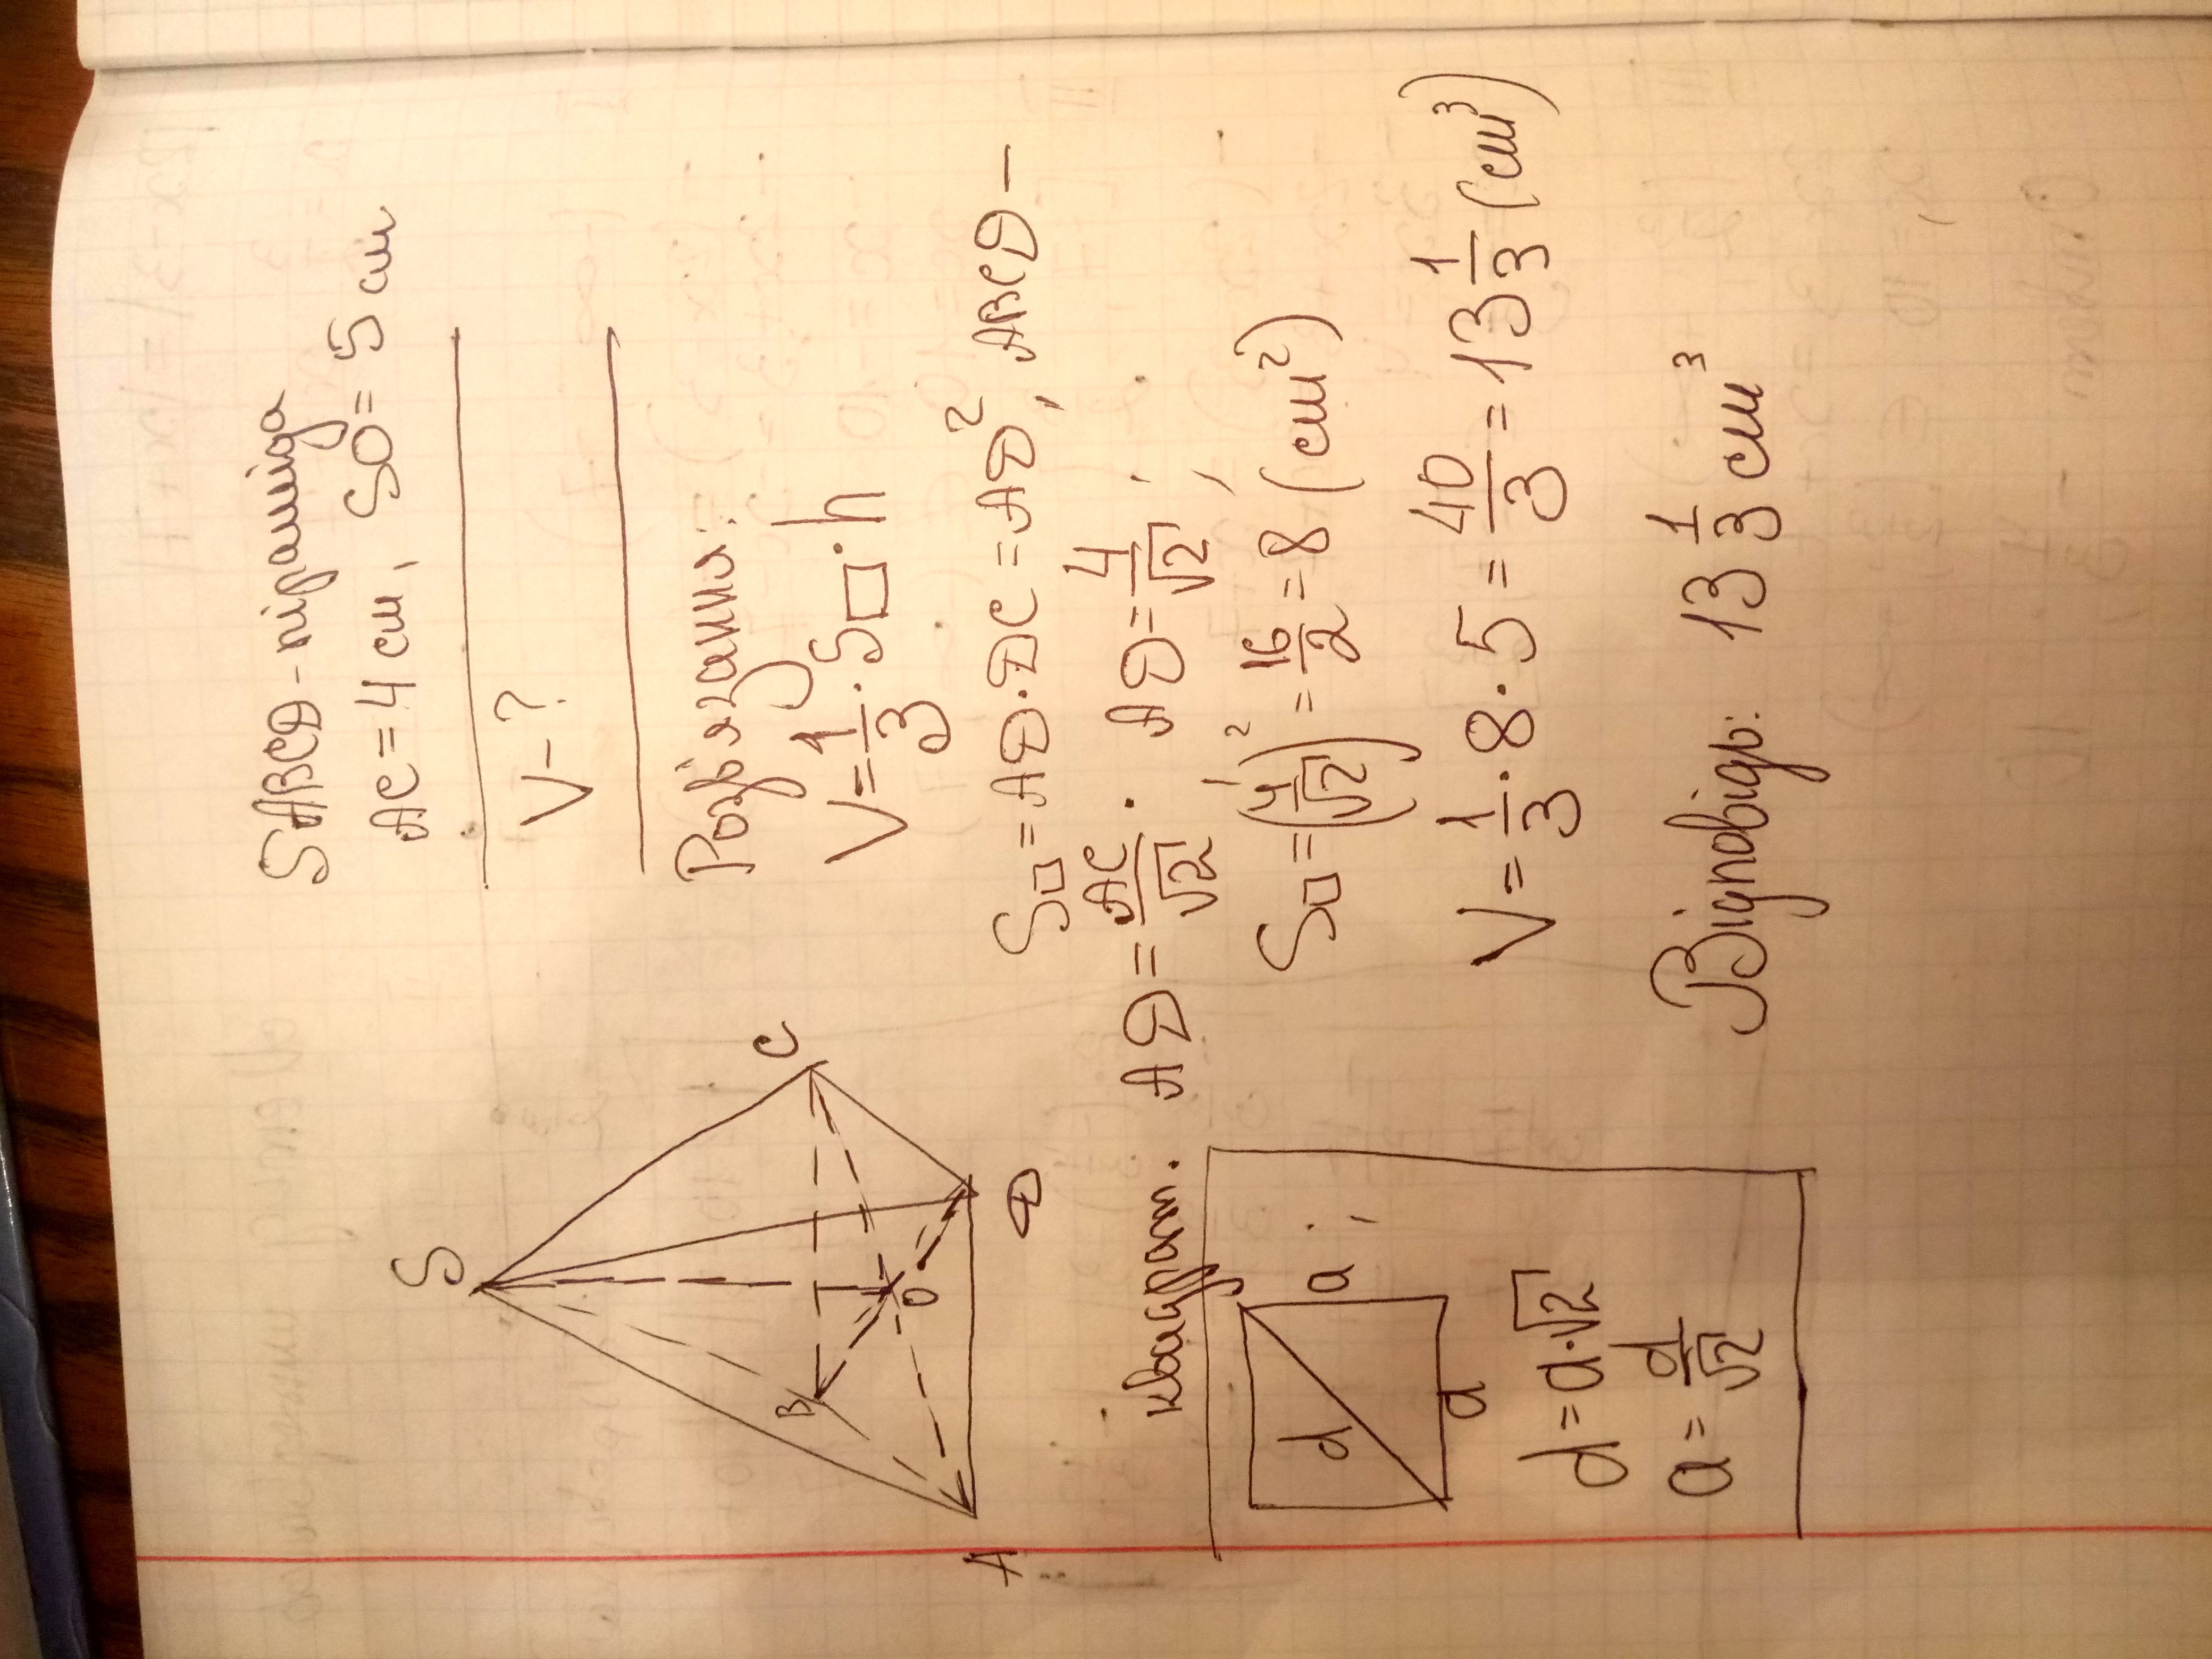 SABCD - піраміда
AC = 4 см, SO = 5 см
V - ?
S
B
C
O
A
D
Розв'язання:
V = 1/3 · S□ · h
S□ = AD · DC = AD², ABCD -
квадрат. AD = AC/√2. AD = 4/√2;
S□ = (4/√2)² = 16/2 = 8 (см²)
V = 1/3 · 8 · 5 = 40/3 = 13 1/3 (см³)
Відповідь: 13 1/3 см³
d
a
;
a
d = a·√2
a = d/√2